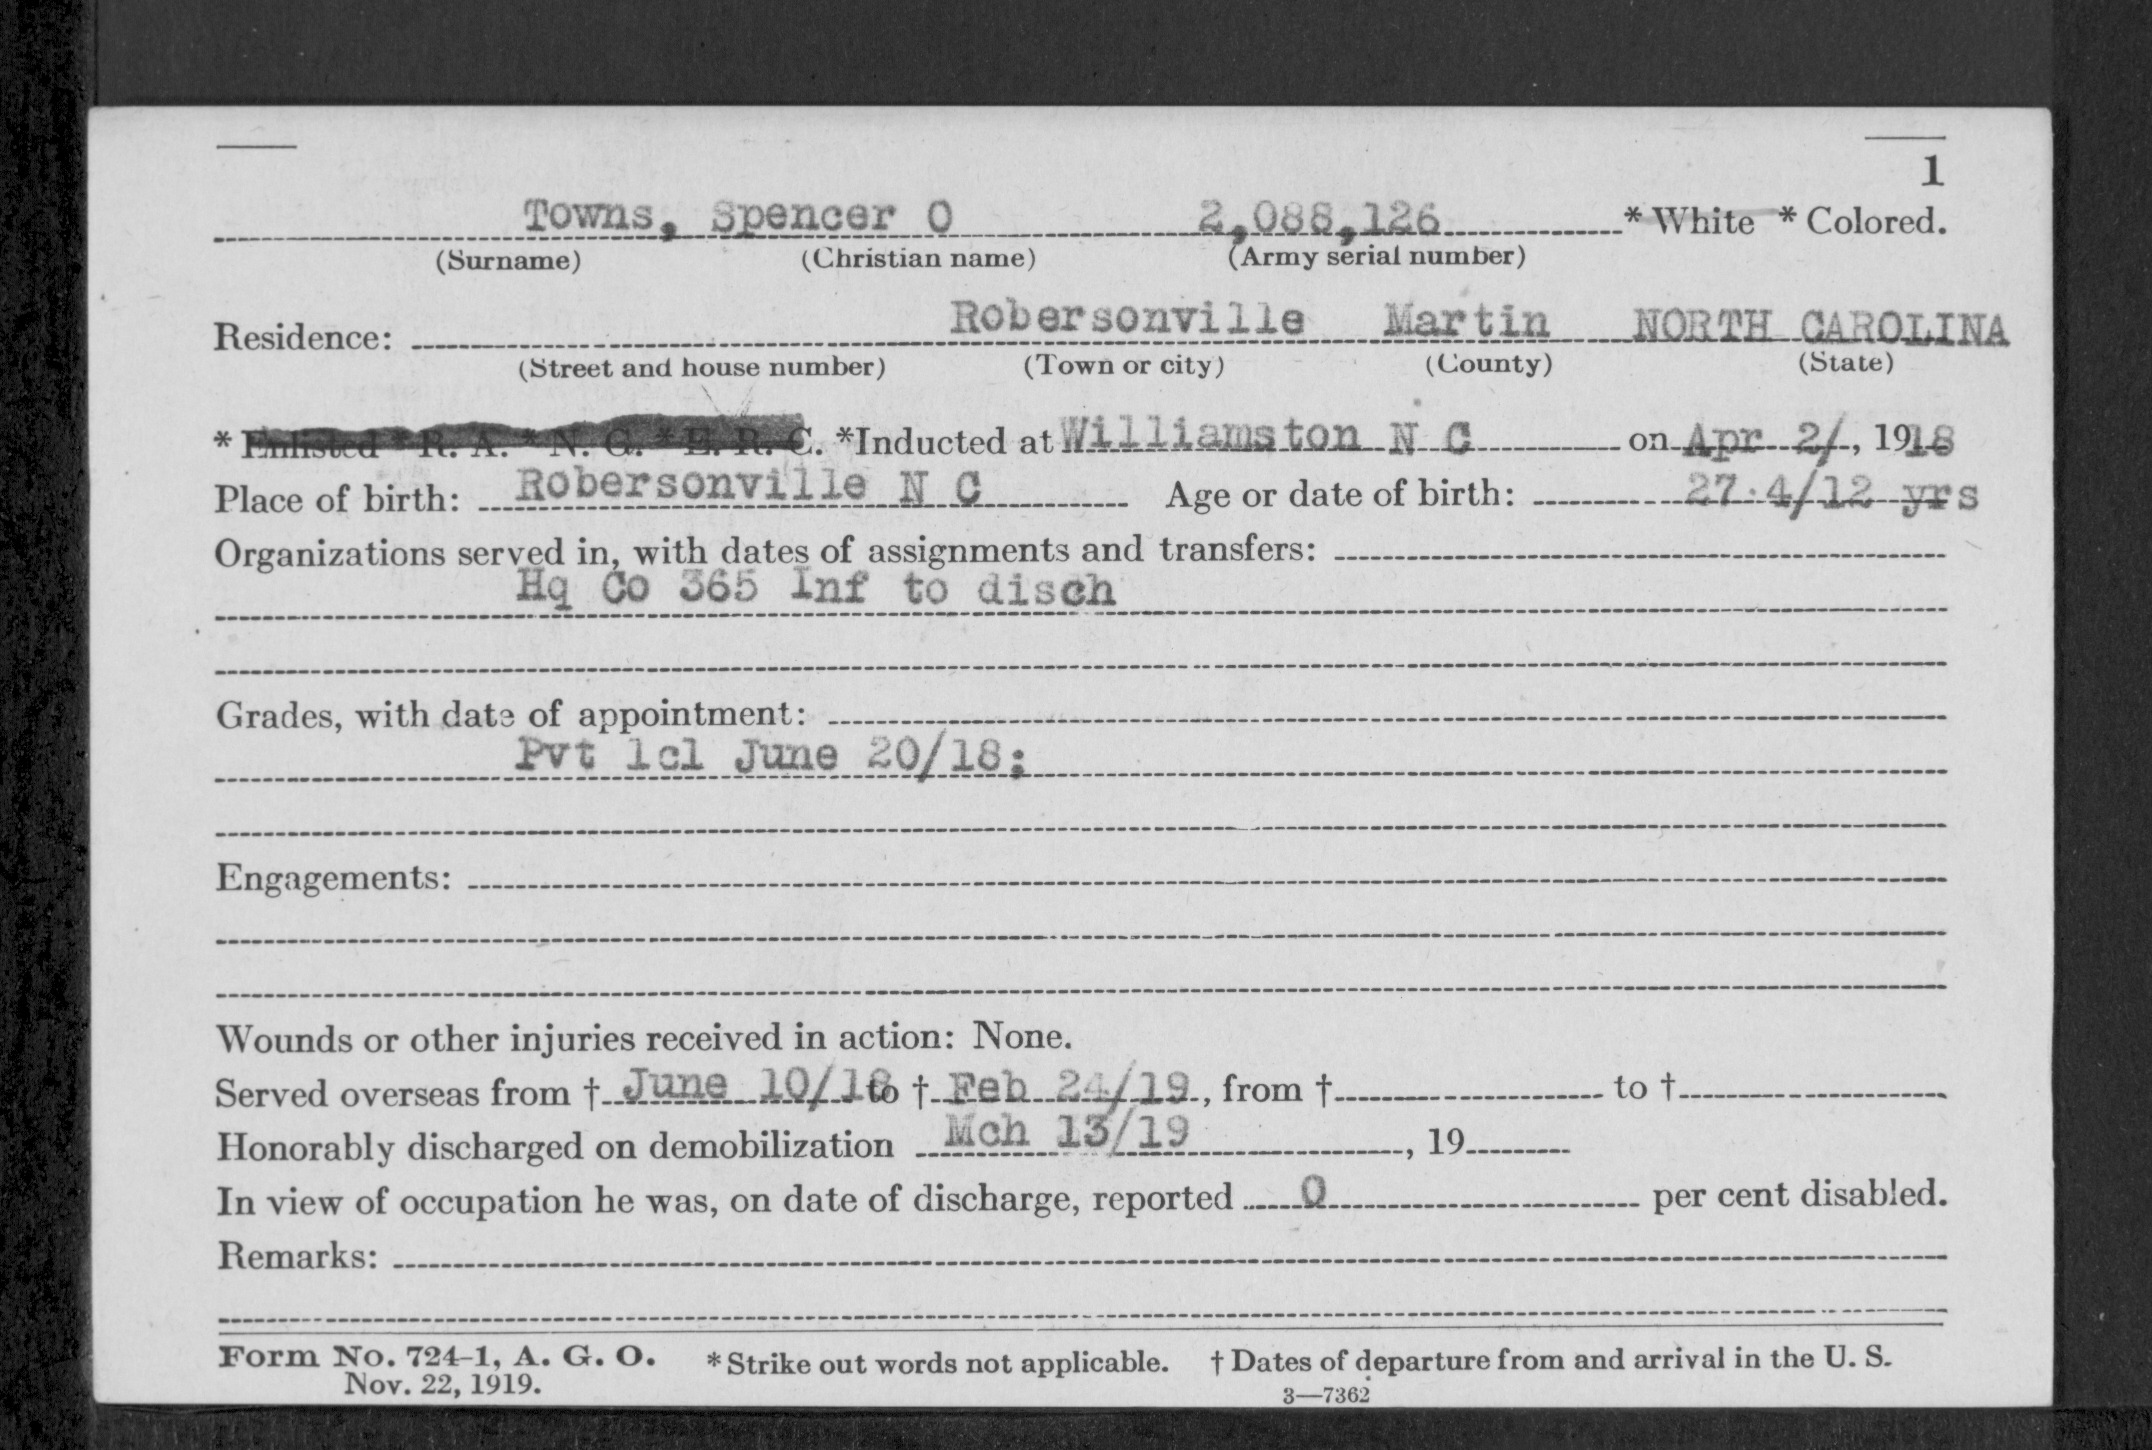 1
Towns, Spencer O 2,088,126 * White * Colored.
(Surname) (Christian name) (Army serial number)
Residence: Robersonville Martin NORTH CAROLINA
(Street and house number) (Town or city) (County) (State)
* Enlisted * R. A. * N. G. * E. R. C. *Inducted at Williamston N C on Apr 2/, 1918
Place of birth: Robersonville N C Age or date of birth: 27 4/12 yrs
Organizations served in, with dates of assignments and transfers:
Hq Co 365 Inf to disch
Grades, with date of appointment:
Pvt 1cl June 20/18;
Engagements:
Wounds or other injuries received in action: None.
Served overseas from † June 10/18 to † Feb 24/19, from † to †
Honorably discharged on demobilization Mch 13/19, 19
In view of occupation he was, on date of discharge, reported 0 per cent disabled.
Remarks:
Form No. 724-1, A. G. O. * Strike out words not applicable. † Dates of departure from and arrival in the U. S.
Nov. 22, 1919. 3—7362